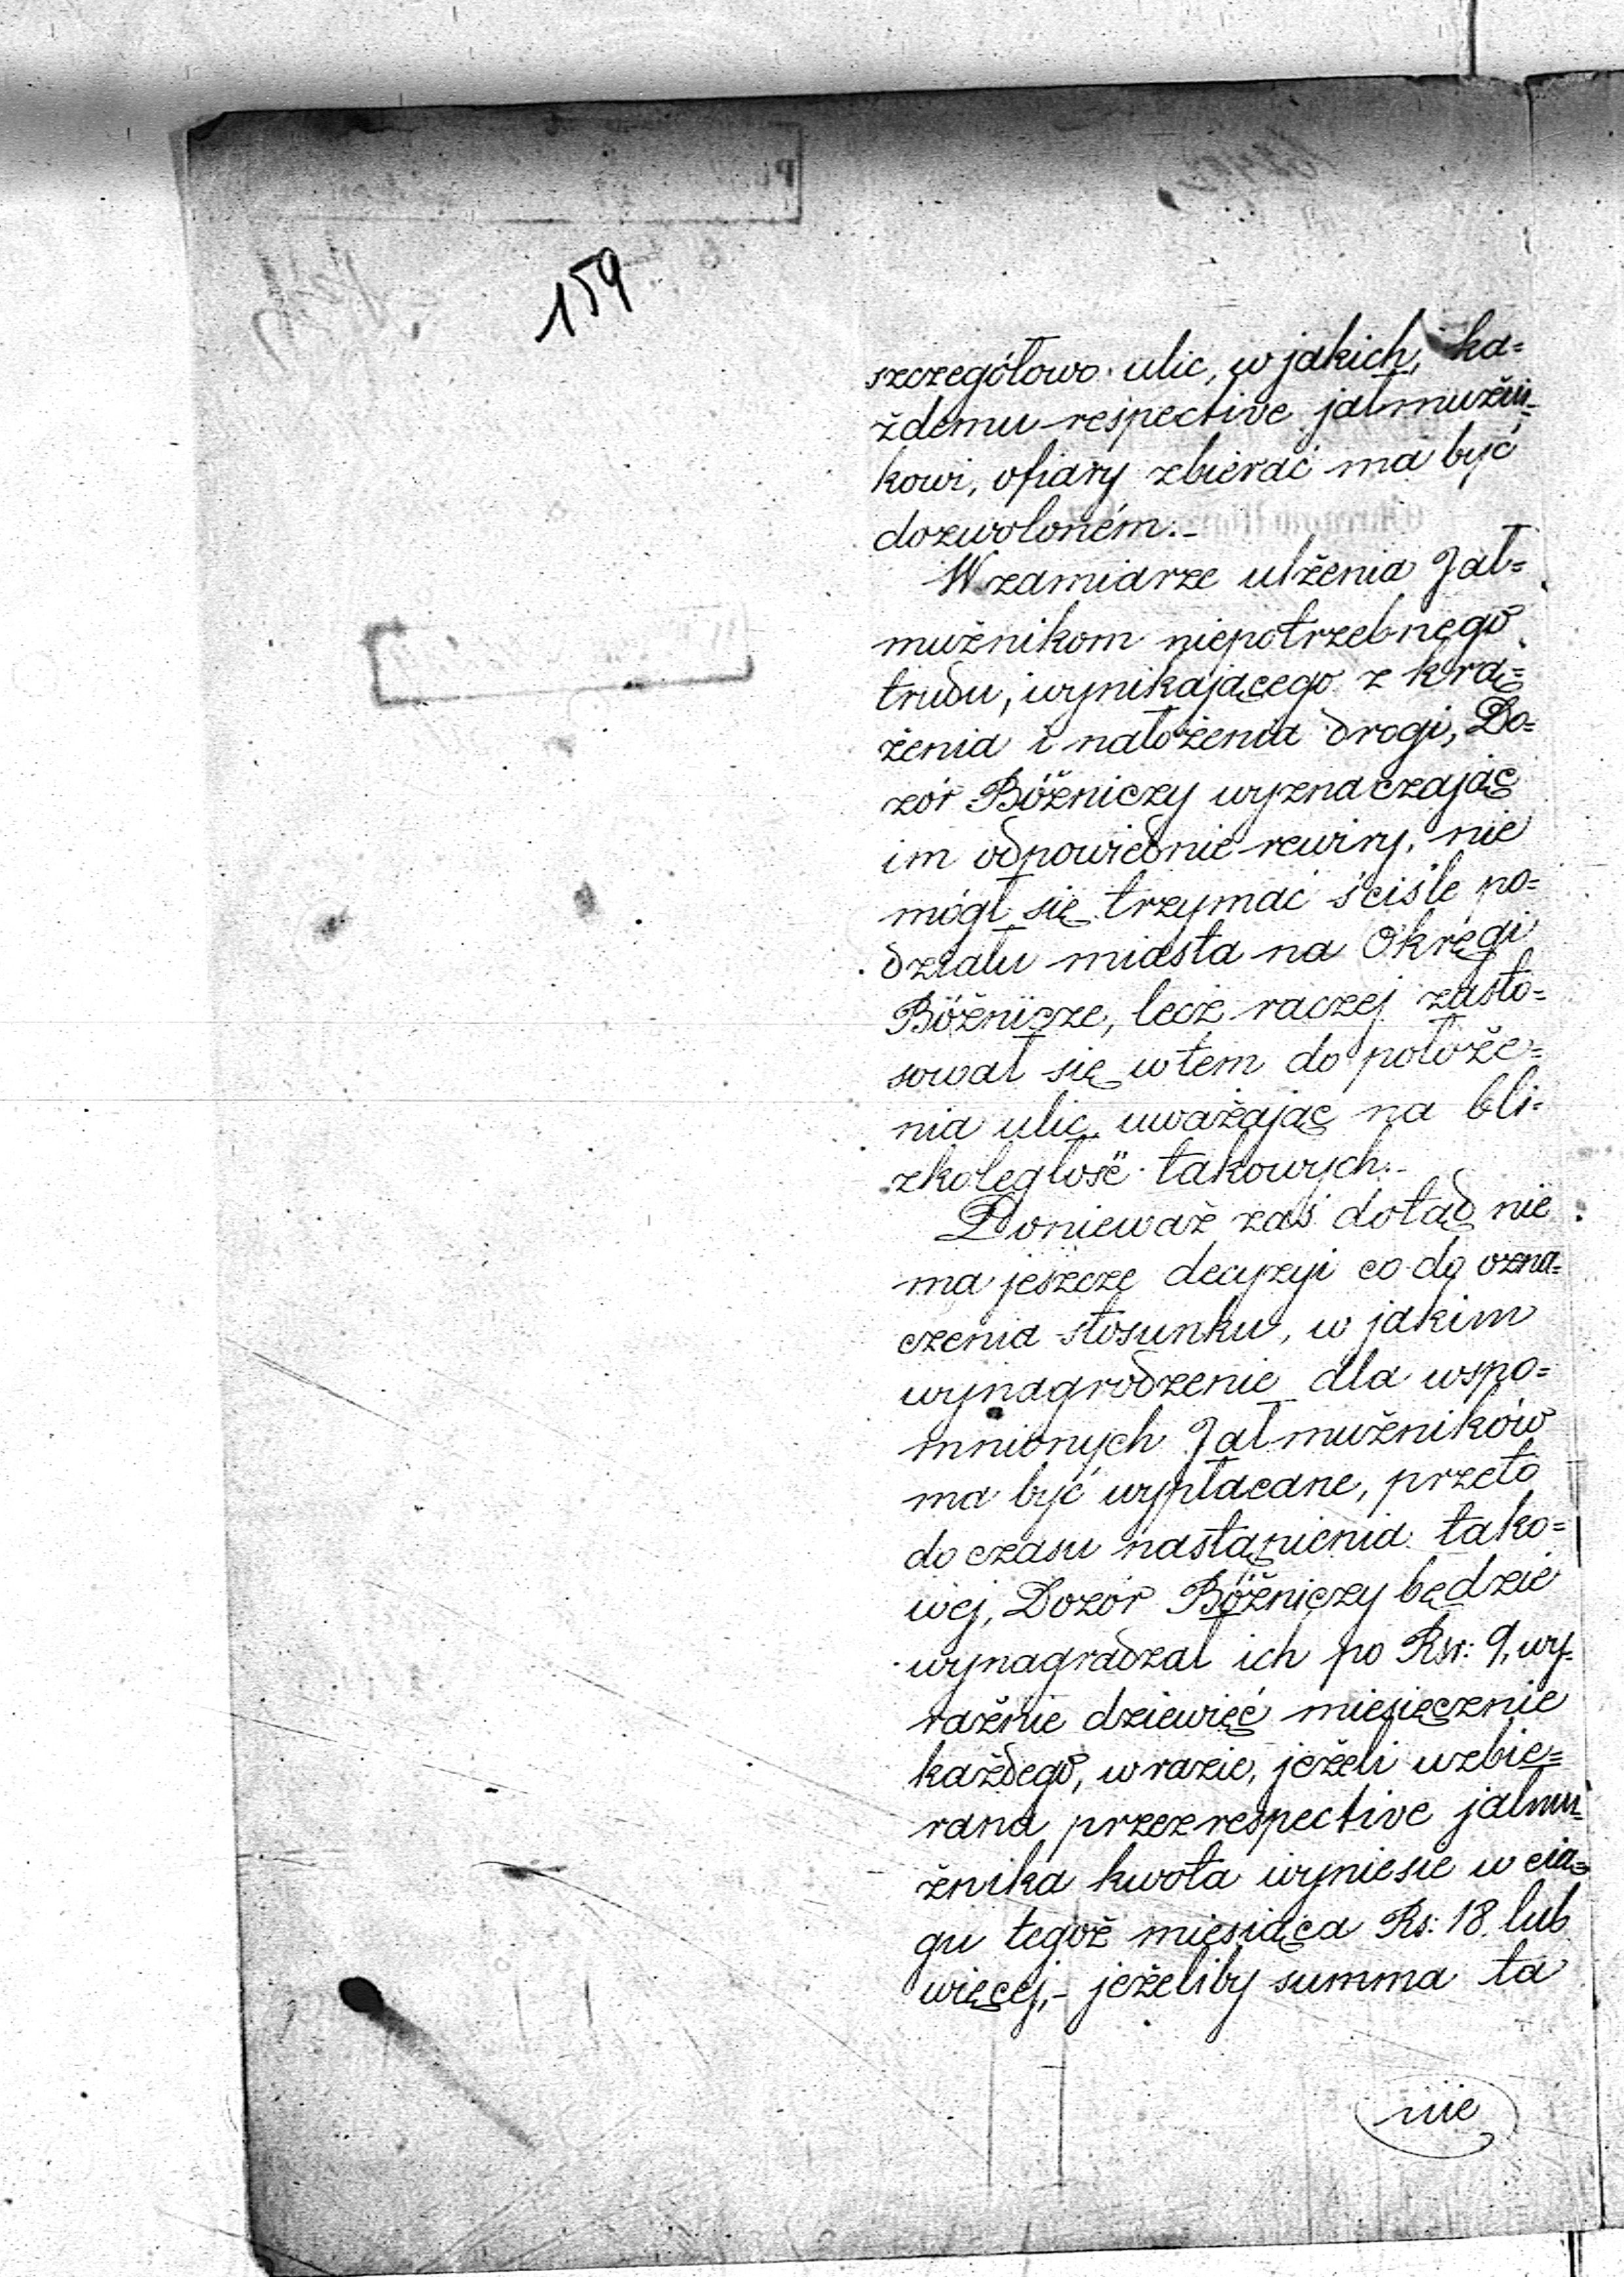 159
szczegółowo ulic, w jakich, ka=
żdemu respective jałmużni=
kowi, ofiary zbierać ma być
dozwoloném.-
W zamiarze ulżenia Jał=
mużnikom niepotrzebnego
trudu, wynikającego z krą=
żenia i nałożenia drogi, Do=
zór Bóżniczy wyznaczając
im odpowiednie rewiry, nie
mógł się trzymać ściśle po=
działu miasta na Okręgi
Bóżnicze, lecz raczej zasto=
sował się w tem do położe=
nia ulic uważając na bli=
zkoległość takowych.-
Ponieważ zaś dotąd nie
ma jeszcze decyzyi co do ozna=
czenia stosunku, w jakim
wynagrodzenie dla wspo=
mnionych Jałmużników
ma być wypłacane, przeto
do czasu nastąpienia tako=
wej, Dozór Bóżniczy będzie
wynagradzał ich po Rsr: 9, wy=
raźnie dziewięć miesięcznie
każdego, w razie, jeżeli uzbie=
rana przez respective jałmu=
żnika kwota wyniesie w cią=
gu tegoż miesiąca Rs: 18 lub
więcej,- jeżeliby summa ta
nie